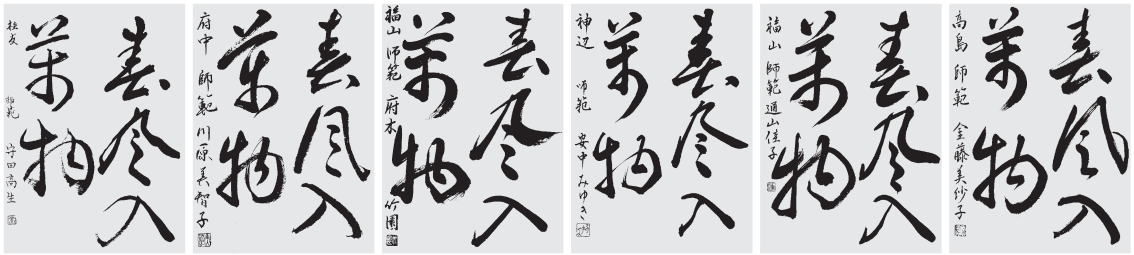 春風入
萬物
社友 師範 守田高生
春風入
萬物
府中 師範 川原美智子
春風入
萬物
福山 師範 府木竹園
春風入
萬物
神辺 師範 安中みゆき
春風入
萬物
福山 師範
春風入
萬物
高島 師範 金藤美紗子